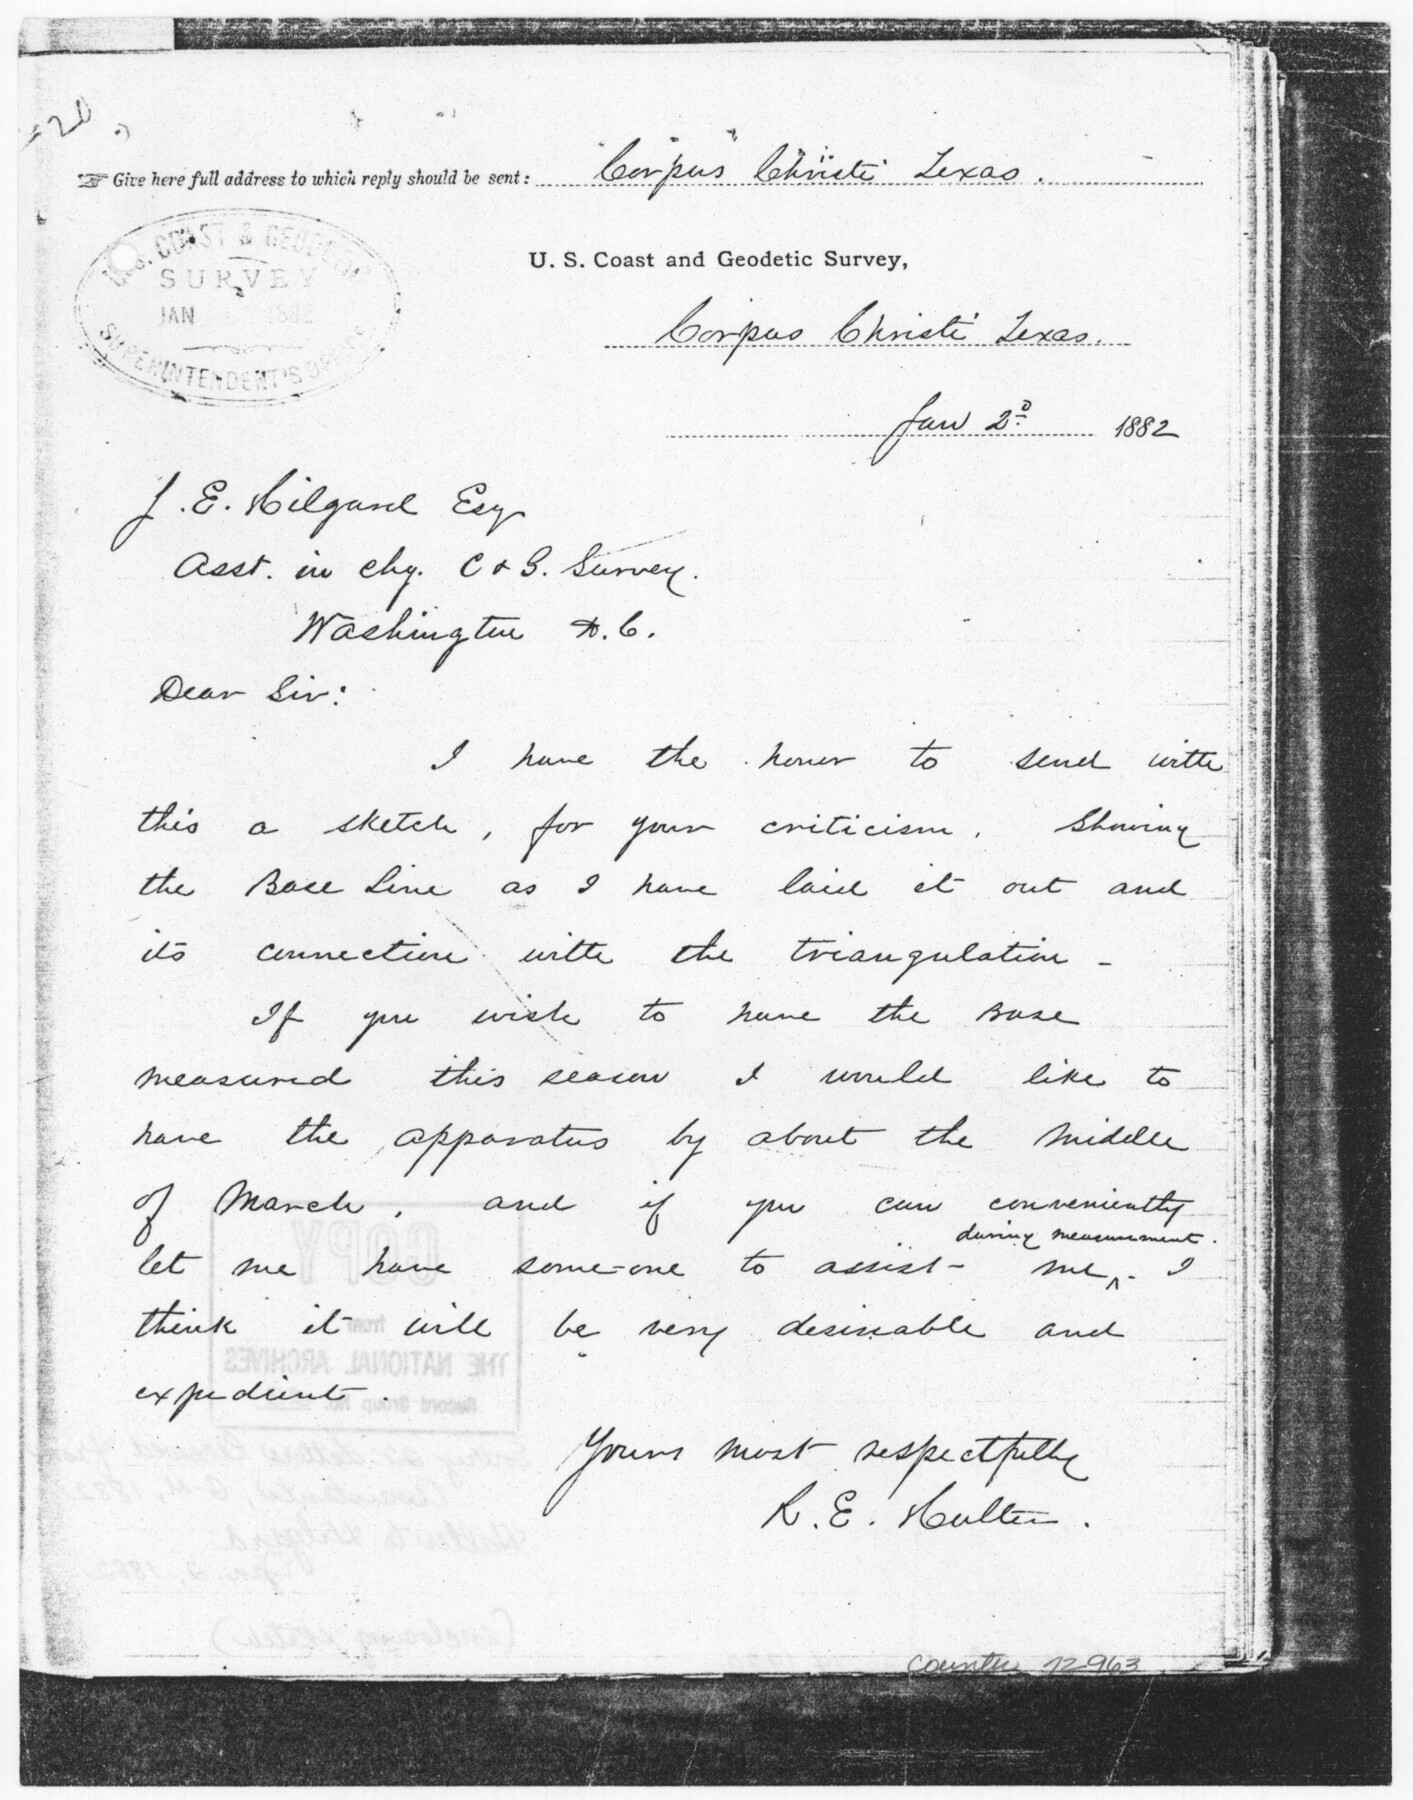 Give here full address to which reply should be sent: Corpus Christi Texas.
U. S. COAST & GEODETIC
SURVEY
JAN 1882
SUPERINTENDENT'S OFFICE
U. S. Coast and Geodetic Survey,
Corpus Christi Texas.
Jan 2d 1882
J. E. Hilgard Esq
Asst. in chg. C & G. Survey.
Washington D. C.
Dear Sir:
I have the honor to send with
this a sketch, for your criticism, Showing
the Base Line as I have laid it out and
its connection with the triangulation -
If you wish to have the Base
measured this season I would like to
have the apparatus by about the middle
of March, and if you can conveniently
during measurement.
let me have some-one to assist me ^. I
think it will be very desirable and
expedient.
COPY
from
THE NATIONAL ARCHIVES
Record Group No.
Yours most respectfully
R. E. Halter.
Halter to Hilgard
Jan. 2, 1882
(enclosing sketch)
counter 72963